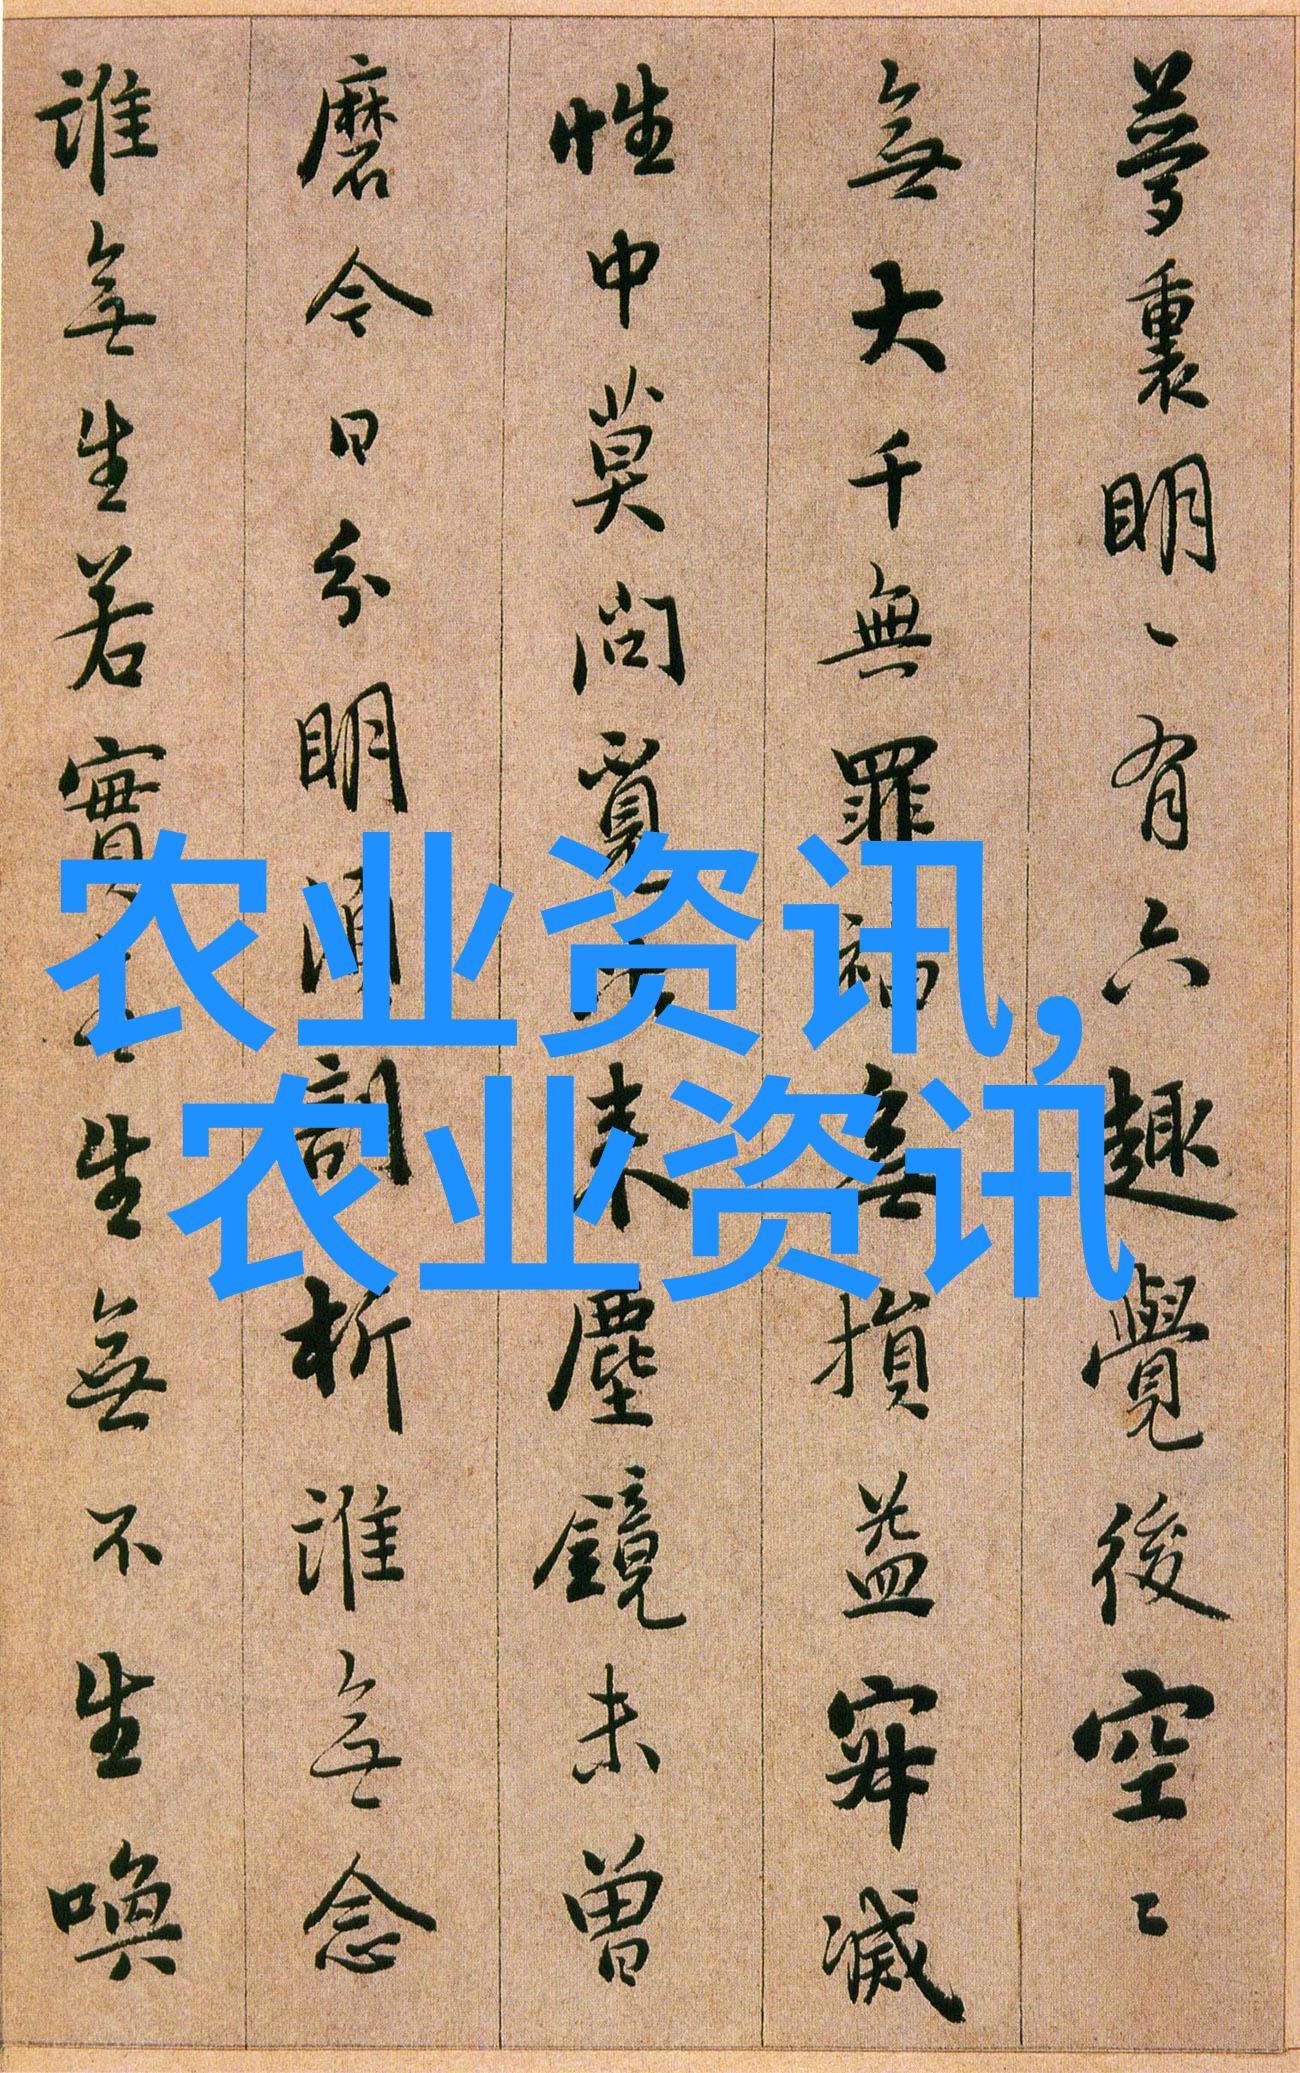 夢裏明々有六趣覺後空々
無大千無罪福無損益寂滅
性中莫問覓來塵鏡未曾
磨今日分明須剖析誰無念
誰無生若實生無不生喚
农业资讯,
农业资讯